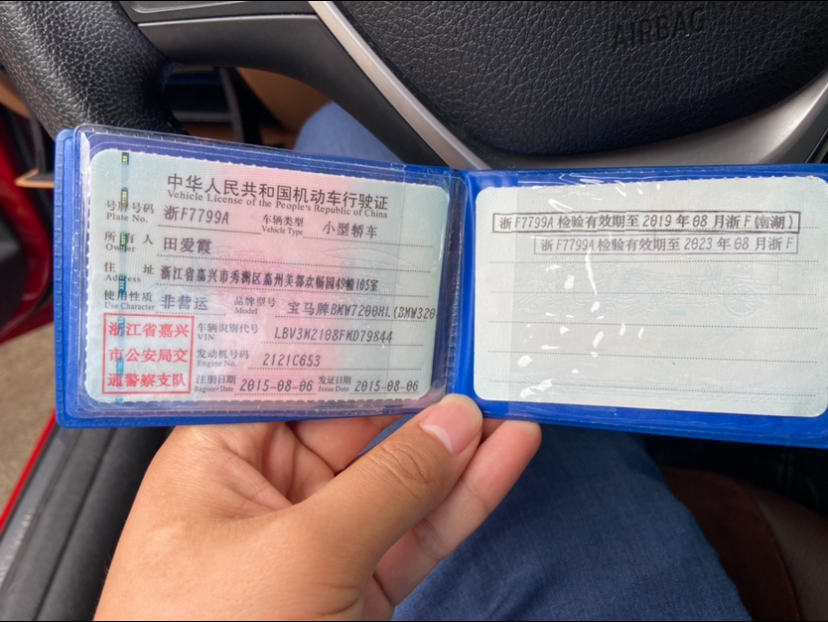 AIRBAG
中华人民共和国机动车行驶证
Vehicle License of the People's Republic of China
号牌号码 浙F7799A 车辆类型 小型轿车
Plate No. Vehicle Type
所有人 田爱霞
Owner
住址 浙江省嘉兴市秀洲区嘉州美都欢畅园49幢105室
Address
使用性质 非营运 品牌型号 宝马牌BMW7200HL(BMW320
Use Character Model
浙江省嘉兴
市公安局交
通警察支队
车辆识别代号 LBV3M2108FMD79844
VIN
发动机号码 2121C653
Engine No.
注册日期 2015-08-06 发证日期 2015-08-06
Register Date Issue Date
浙F7799A检验有效期至2019年08月浙F(南湖)
浙F7799A检验有效期至2023年08月浙F